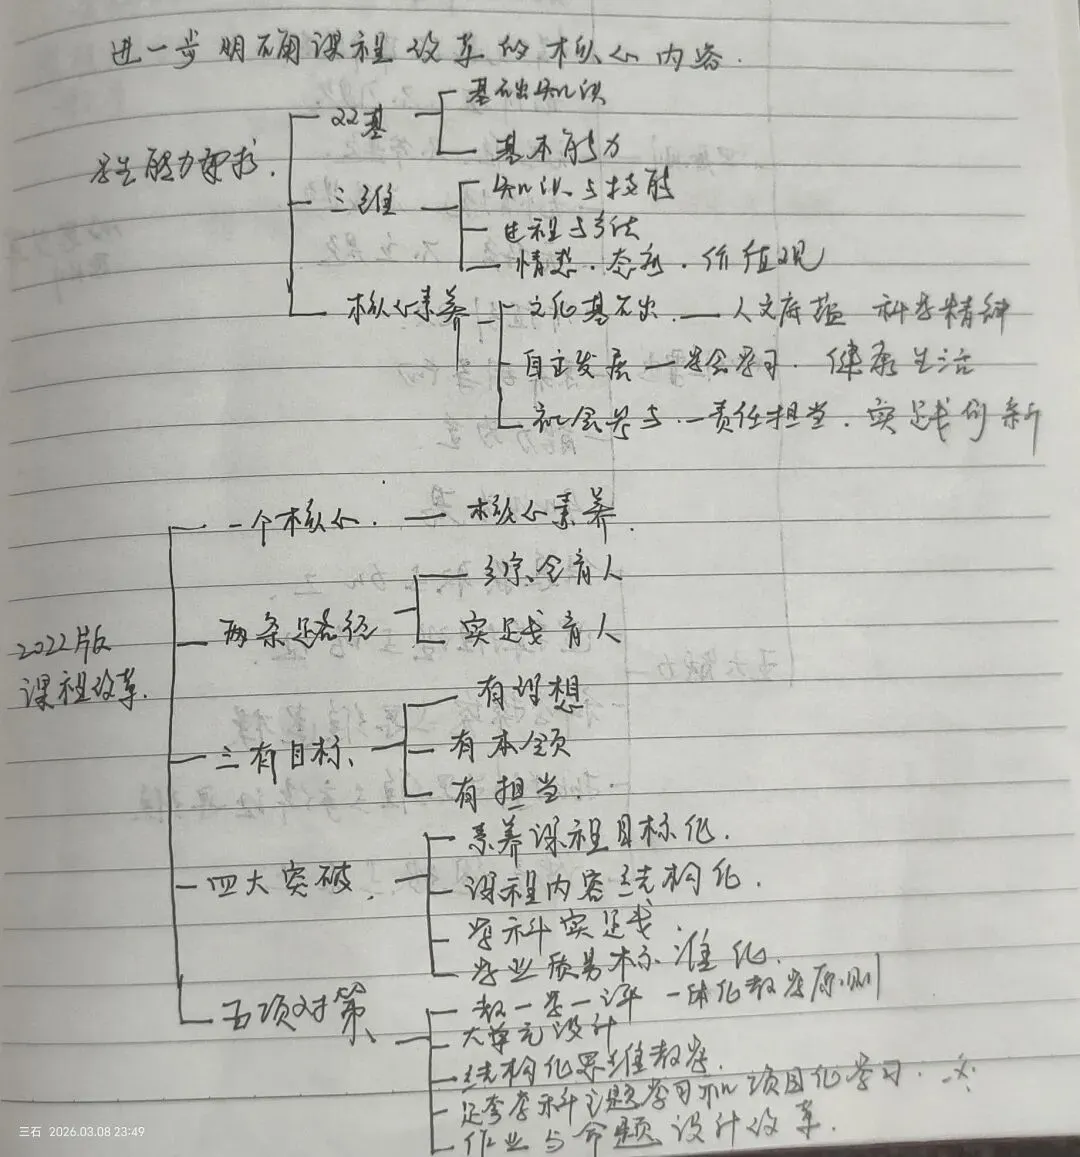 进一步明确课程改革的核心内容.
学生能力要求.
22基
基础知识
基本能力
三维
知识与技能
过程与方法
情感.态度.价值观
核心素养
文化基础.—人文底蕴 科学精神
自主发展—学会学习.健康生活
社会参与.—责任担当.实践创新
2022版
课程改革.
一个核心.—核心素养.
两条路径
综合育人
实践育人
三有目标、
有理想
有本领
有担当.
四大突破.
素养课程目标化.
课程内容结构化.
学科实践
学业质量标准化.
五项对策、
教—学—评 一体化教学原则
大单元设计
结构化思维教学.
跨学科主题学习和项目化学习.
作业与命题设计改革.
三石 2026.03.08 23:49